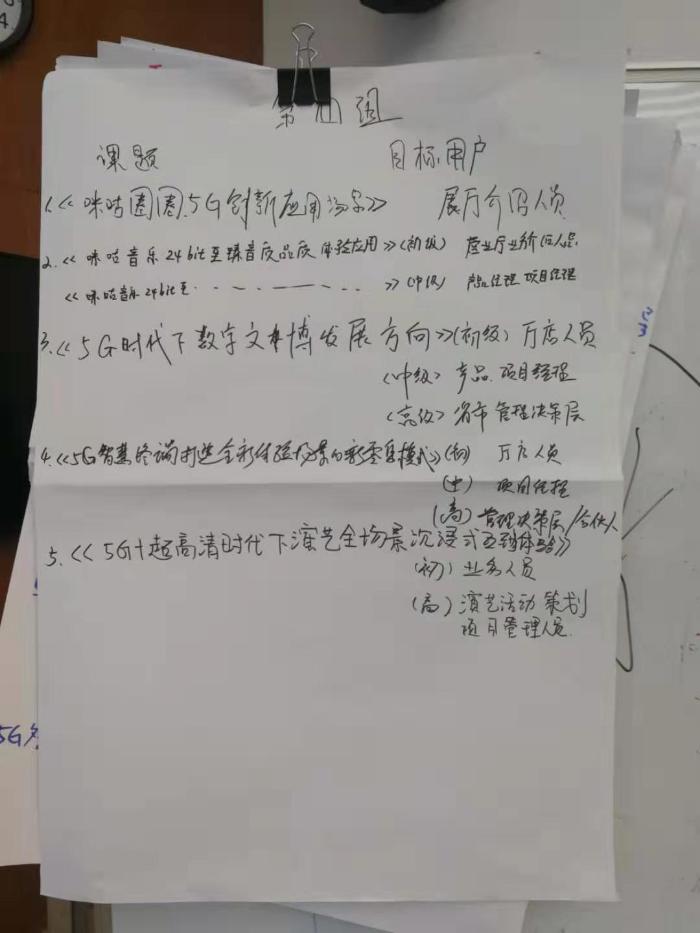 第四组
课题 目标用户
1.《咪咕圈圈5G创新应用场景》 展厅介绍人员
2.《咪咕音乐24bit至臻音质品质体验应用》(初级) 营业厅业务介绍人员
《咪咕音乐24bit至·········》(中级) 产品经理 项目经理
3.《5G时代下数字文博发展方向》(初级) 厅店人员
(中级) 产品、项目经理
(高级) 省市管理决策层
4.《5G智慧终端打造全新体验场景的新商业模式》(初) 厅店人员
(中) 项目经理
(高) 管理决策层/合伙人
5.《5G+超高清时代下演艺全场景沉浸式互动体验》
(初) 业务人员
(高) 演艺活动策划
项目管理人员
5G